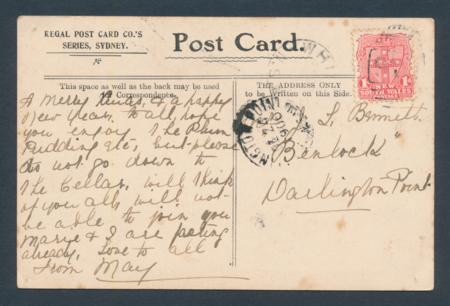 REGAL POST CARD CO.'S
SERIES, SYDNEY.
Post Card.
This space as well as the back may be used
for Correspondence.
THE ADDRESS ONLY
to be Written on this Side.
NEW
SOUTH WALES
POSTAGE
A Merry Xmas, & a happy
New Year to all, hope
you enjoy The Plum
Pudding etc, but please
do not go down to
The Cellar, will think
of you all, will not
be able to join you
Marge & I are
already, love to all
From May
L. Bennett
Benlock "
Darlington Point